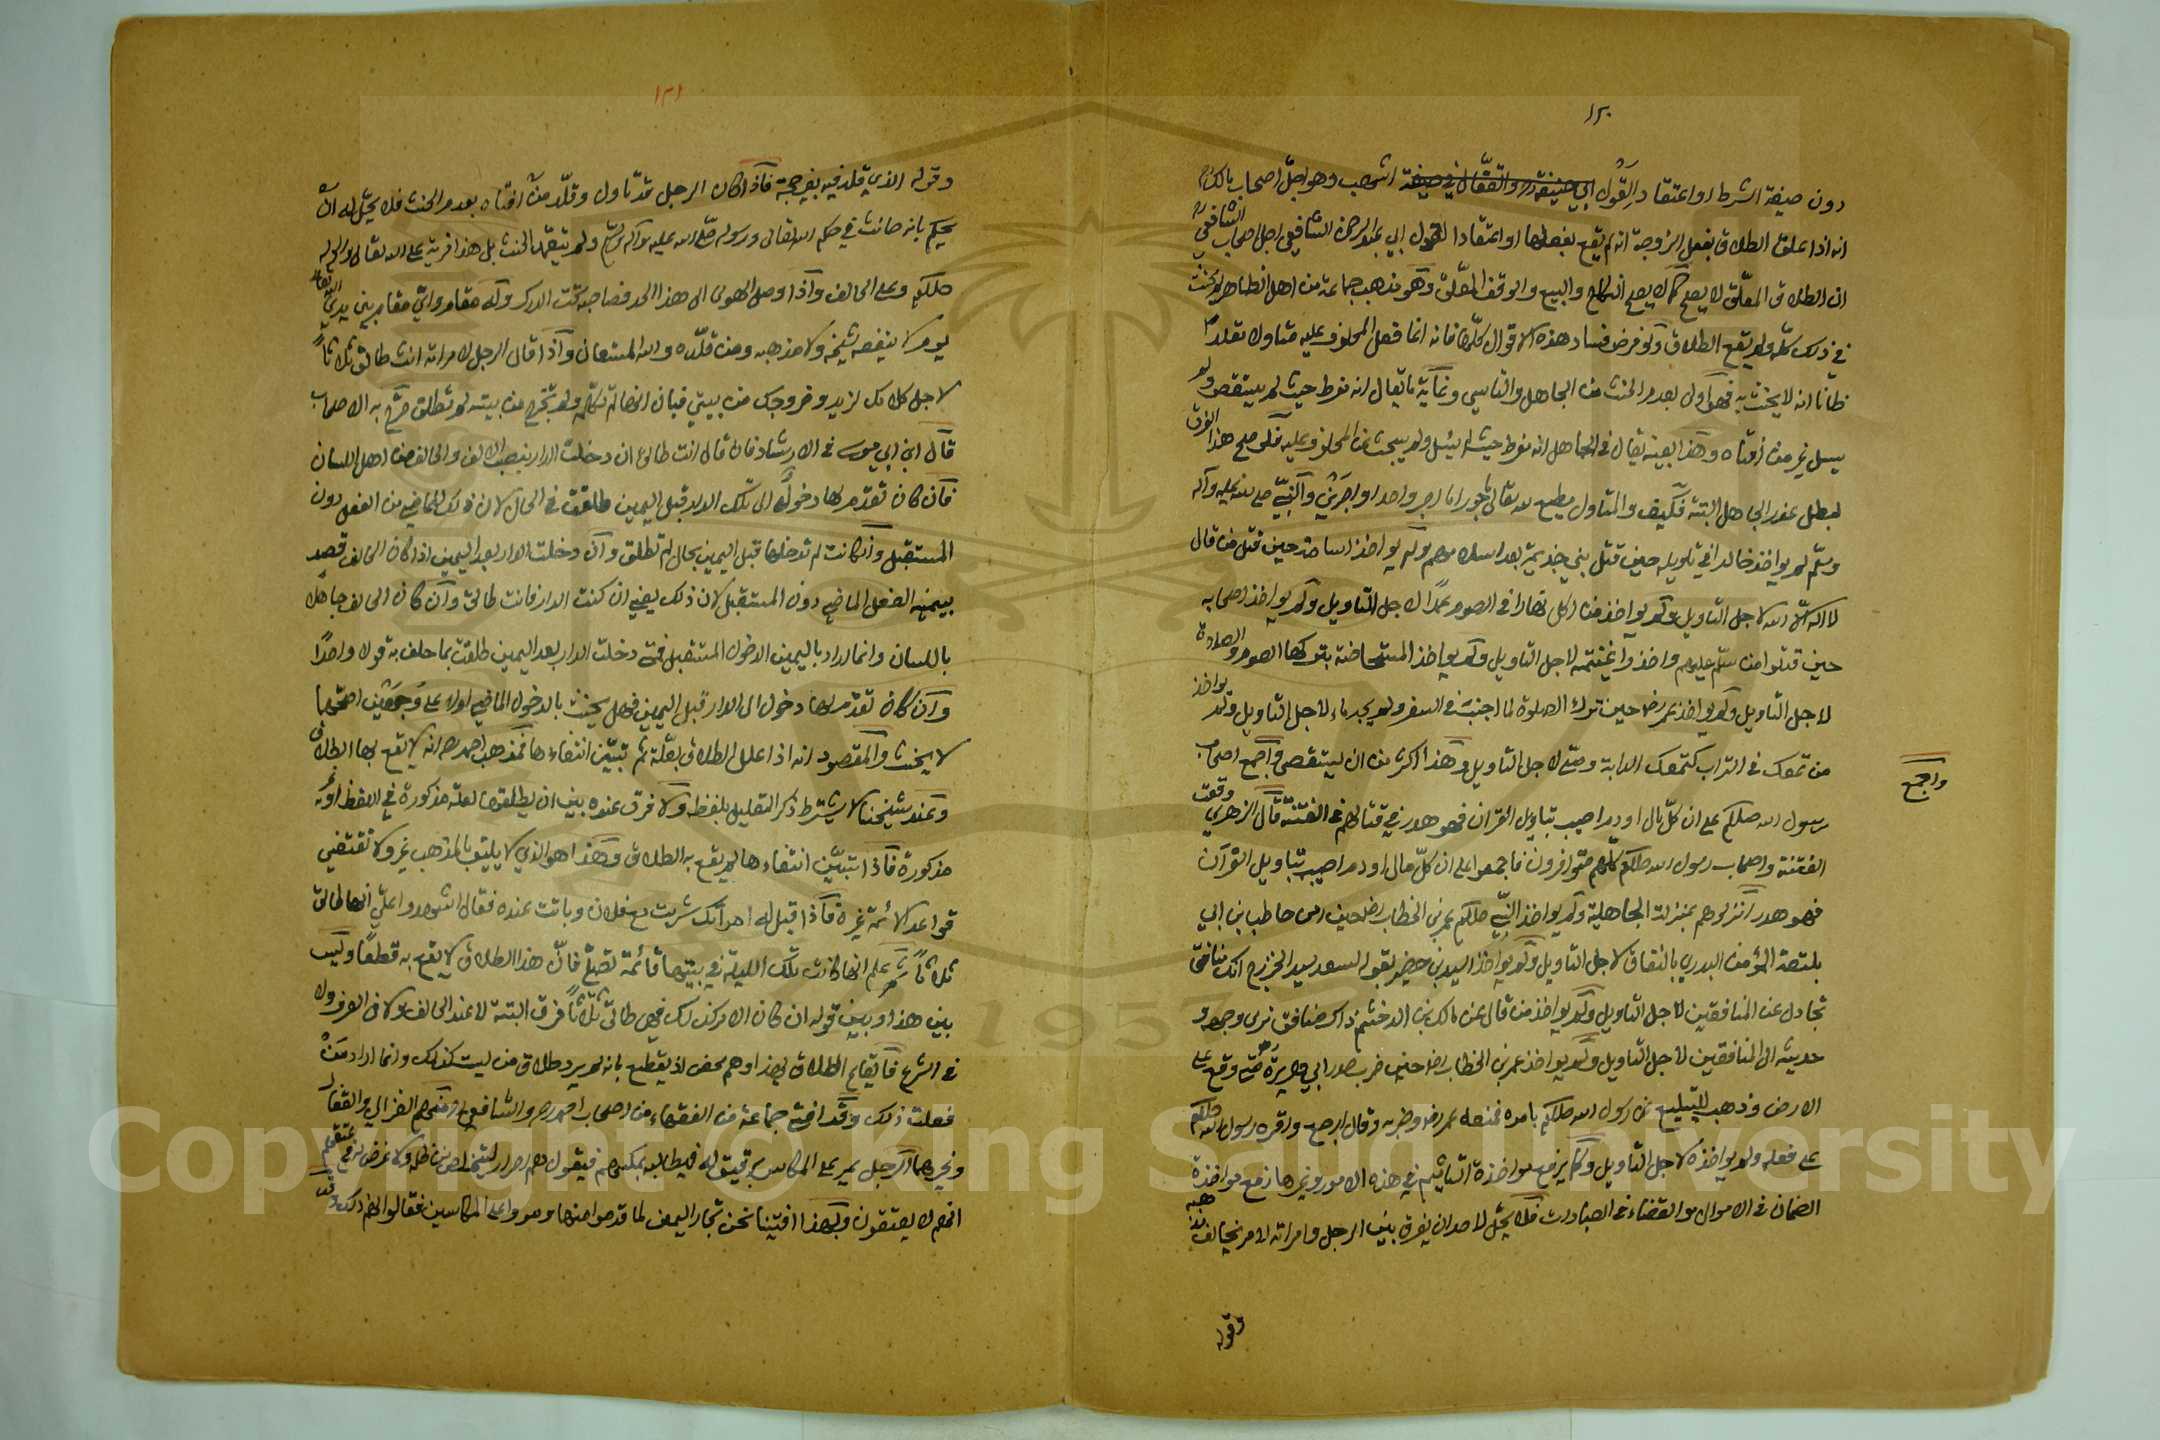 ١٢٠
دون صيغة الشرط او اعتقاد القول ابي حنيفة والقفال في صيغة اشهب وهو اجل اصحاب مالك
انه اذا علق الطلاق بفعل الزوجة انه لم يقع بفعلها او اعتقادا لقول ابي عبد الرحمن الشافعي اجل اصحاب الشافعي
ان الطلاق المعلق لا يصح كما لا يصح النكاح والبيع والوقف المعلق وهو مذهب جماعة من اهل الظاهر لم يحنث
في ذلك كله ولم يقع الطلاق ولو فرض فساد هذه الاقوال كلها فانه انما فعل المحلوف عليه متاولا مقلدا
ظانا انه لا يحنث به فهو اولى بعدم الحنث من الجاهل والناسي وغاية ما يقال انه فرط حيث لم يستقص ولم
يسل غير من افتاه وهذا بعينه يقال في الجاهل انه فرط حيث لم يسئل ولم يبحث عن المحلوف عليه فلو صح هذا الفرق
لبطل عذر الجاهل البتة فكيف والمتاول مطيع لله تعالى ماجور اما اجر واحدا او اجرين والنبي صلى الله عليه وآله
وسلم لم يواخذ خالدا في تاويله حين قتل بني جذيمة بعد اسلامهم ولم يواخذ اسامة حين قتل من قال
لا اله الا الله لاجل التاويل ولم يواخذ من اكل نهارا في الصوم عمدا لاجل التاويل ولم يواخذ اصحابه
حين قتلوا من سلم عليهم واخذوا غنيمته لاجل التاويل ولم يواخذ المستحاضة بتركها الصوم والصلوة
لاجل التاويل ولم يواخذ عمر رض حين ترك الصلوة لما اجنب في السفر ولم يجد ماء لاجل التاويل ولم يواخذ
من تمعك في التراب كتمعك الدابة وصلى لاجل التاويل وهذا اكثر من ان يستقصى واجمع اصحاب
واجمع
رسول الله صلعم على ان كل مال او دم اصيب بتاويل القران فهو هدر في قتالهم في الفتنة قال الزهري وقعت
الفتنة واصحاب رسول الله صلعم كلهم متوافرون فاجمعوا على ان كل مال او دم اصيب بتاويل القرآن
فهو هدر انزلوهم بمنزلة الجاهلية ولم يواخذ النبي صلعم عمر بن الخطاب رض حين رمى حاطب بن ابي
بلتعة المؤمن البدري بالنفاق لاجل التاويل ولم يواخذ اسيد بن حضير بقوله لسعد سيد الخزرج انك منافق
تجادل عن المنافقين لاجل التاويل ولم يواخذ من قال عن مالك بن الدخشم ذاك منافق نرى وجهه و
حديثه الى المنافقين لاجل التاويل ولم يواخذ عمر بن الخطاب رض حين ضرب صدر ابي هريرة حتى وقع على
الارض وذهب للتبليغ عن رسول الله صلعم بامره فمنعه عمر رض وضربه وقال ارجع واقره رسول الله صلعم
على فعله ولم يواخذه لاجل التاويل وكما رفع مواخذة التاثيم في هذه الامور وغيرها رفع مواخذة
الضمان في الاموال والقضاء في العبادات فلا يحل لاحد ان يفرق بين الرجل وامراته لامر يخالف مذهبه
وقوله
١٢١
وقوله الذي قلد فيه بغير حجة فاذا كان الرجل قد تاول وقلد من افتاه بعدم الحنث فلا يحل له ان
يحكم بانه حانث في حكم الله تعالى ورسوله صلى الله عليه وآله وسلم ولم يتعمد الحنث بل هذا فرية على الله تعالى ورسوله
صلعم وعلى الحالف واذا وصل الهوى الى هذا الحد فصاحبه تحت الدرك وله مقام واي مقام بين يدي الله تعالى
يوم لا ينفعه شيخه ولا مذهبه ومن قلده والله المستعان واذا قال الرجل لامراته انت طالق ثلاثا
لاجل كلامك لزيد وخروجك من بيتي فبان انها لم تكلمه ولم تخرج من بيته لم تطلق صرح به الاصحاب
قال ابن ابي موسى في الارشاد فان قال انت طالق ان دخلت الدار بنصب الالف والحالف من اهل اللسان
فان كان تقدم لها دخول الى تلك الدار قبل اليمين طلقت في الحال لان ذلك للماضي من الفعل دون
المستقبل وان كانت لم تدخلها قبل اليمين بحال لم تطلق وان دخلت الدار بعد اليمين اذا كان الحالف قصد
بيمينه الفعل الماضي دون المستقبل لان ذلك يعني ان كنت الدار فانت طالق وان كان الحالف جاهلا
باللسان وانما اراد باليمين الدخول المستقبل فمتى دخلت الدار بعد اليمين طلقت بما حلف به قولا واحدا
وان كان تقدم لها دخول الى الدار قبل اليمين فهل يحنث بالدخول الماضي ام لا على وجهين اصحهما
لا يحنث والمقصود انه اذا علل الطلاق بعلة ثم تبين انتفاءها فمذهب احمد رح انه لا يقع بها الطلاق
وعند شيخنا لا يشترط ذكر التعليل بلفظه ولا فرق عنده بين ان يطلقها لعلة مذكورة في اللفظ او غير
مذكورة فاذا تبين انتفاءها لم يقع به الطلاق وهذا هو الذي لا يليق بالمذهب غيره ولا تقتضي
قواعد الائمة غيره فاذا قيل له امرأتك شربت مع فلان وباتت عنده فقال اشهدوا علي انها طالق
ثلاثا ثم علم انها كانت تلك الليلة في بيتها قائمة تصلي فان هذا الطلاق لا يقع به قطعا وليس
بين هذا وبين قوله ان كان الامر كذلك فهي طالق ثلاثا فرق البتة لا عند الحالف ولا في العرف ولا
في الشرع فايقاع الطلاق بهذا وهم محض اذ يقطع بانه لم يرد طلاق من ليست كذلك وانما اراد من
فعلت ذلك وقد افتى جماعة من الفقهاء من اصحاب احمد رح والشافعي منهم الغزالي والقفال
وغيرهما الرجل يمر على المكاس برقيق له فيطالبه بمكسهم فيقول هم احرار ليتخلص من ظلمه ولا غرض له في عتقهم
انهم لا يعتقون وبهذا افتينا نحن تجار اليمن لما قدموا منها ومروا على المكاسين فقالوا لهم ذلك وقد